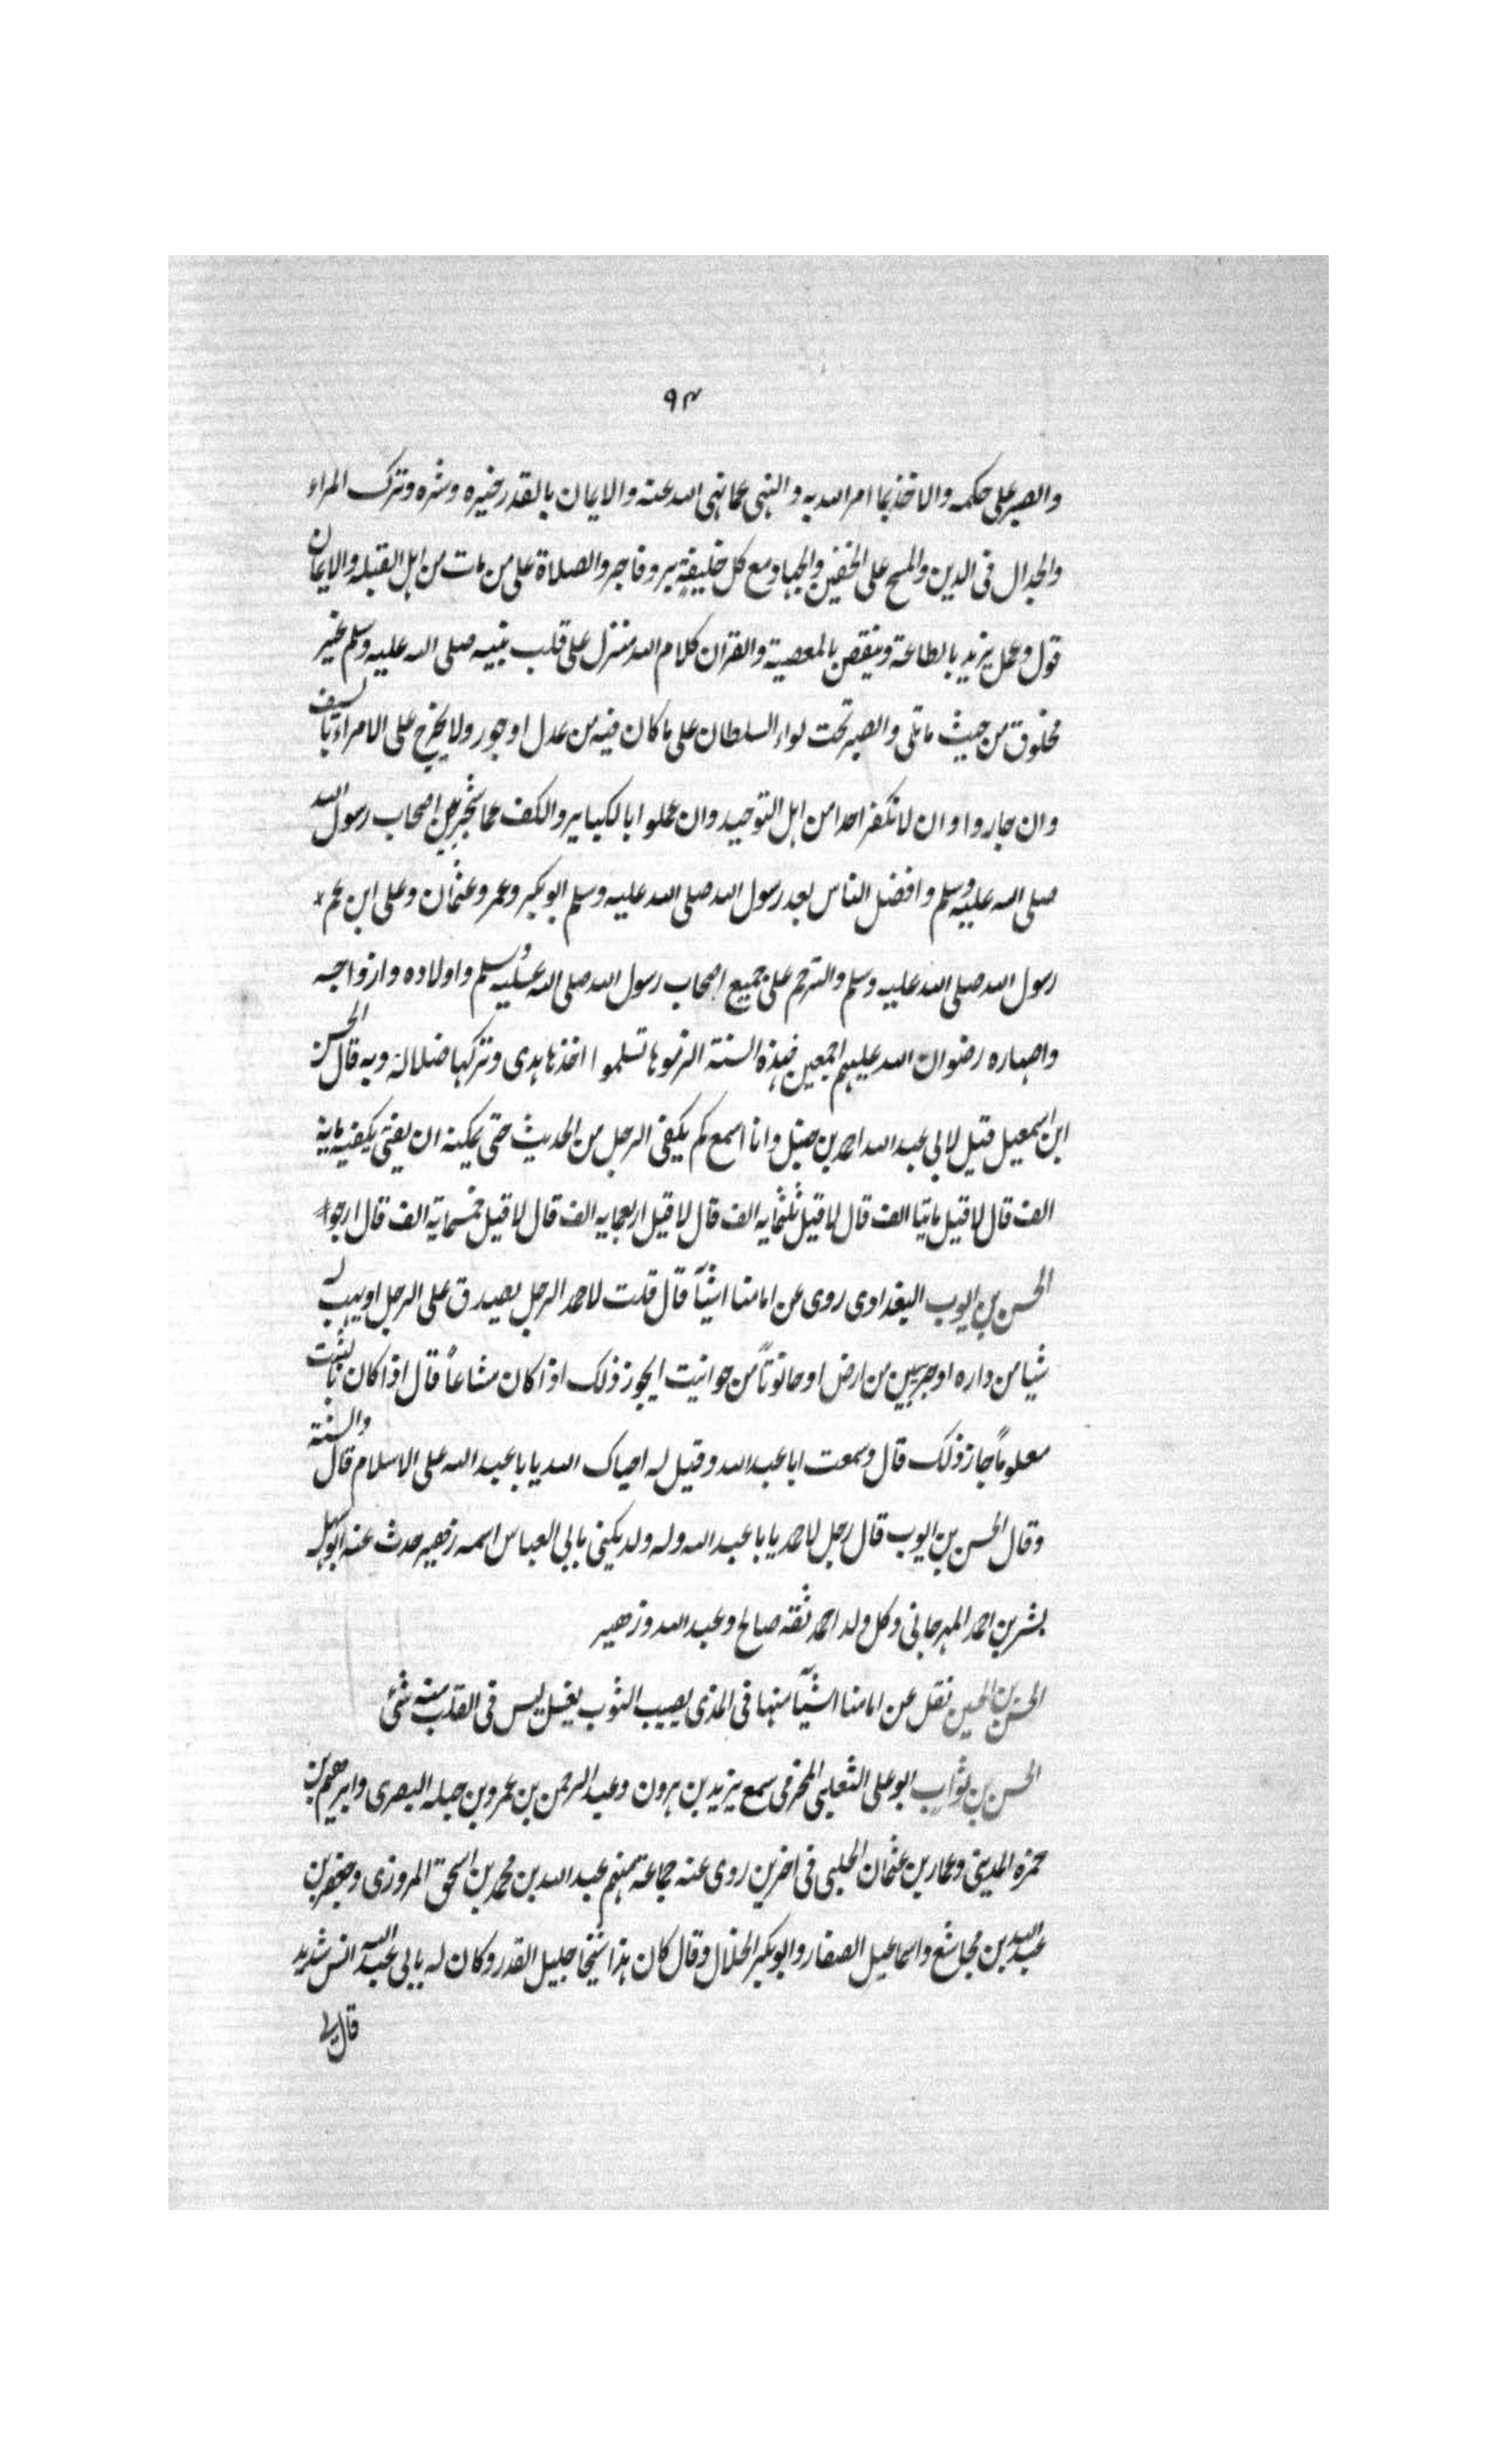 ٩٤
والصبر على حكمه والاخذ بما امر الله به والنهى عما نهى الله عنه والايمان بالقدر خيره وشره وترك المراء
والجدال فى الدين والمسح على الخفين والجهاد مع كل خليفة بر وفاجر والصلاة على من مات من اهل القبله والايمان
قول وعمل يزيد بالطاعة وينقص بالمعصية والقران كلام الله منزل على قلب نبيه صلى الله عليه وسلم غير
مخلوق من حيث ما تلى والصبر تحت لواء السلطان على ما كان فيه من عدل او جور ولا يخرج على الامراء بالسيف
وان جاروا وان لا نكفر احدا من اهل التوحيد وان عملوا بالكبائر والكف عما شجر بين اصحاب رسول الله
صلى الله عليه وسلم وافضل الناس بعد رسول الله صلى الله عليه وسلم ابو بكر وعمر وعثمان وعلى ابن عم
رسول الله صلى الله عليه وسلم والترحم على جميع اصحاب رسول الله صلى الله عليه وسلم واولاده وازواجه
واصهاره رضوان الله عليهم اجمعين فهذه السنة الزموها تسلموا اخذها هدى وتركها ضلالة وبه قال الحسن
ابن اسمعيل قيل لابى عبد الله احمد بن حنبل وانا اسمع كم يكفى الرجل من الحديث حتى يمكنه ان يفتى يكفيه ماية
الف قال لا قيل مايتا الف قال لا قيل ثلثمايه الف قال لا قيل اربعمايه الف قال لا قيل خمسماية الف قال ارجوا
الحسن بن ايوب البغدادى روى عن امامنا اشيآ قال قلت لاحمد الرجل يصدق على الرجل او يهب له
شيا من داره او جريبين من ارض او حانوتاً من حوانيت ايجوز ذلك اذا كان مشاعاً قال اذا كان ثابتا
معلوماً جاز ذلك قال وسمعت ابا عبد الله وقيل له احياك الله يا با عبد الله على الاسلام قال والسنة
وقال الحسن بن ايوب قال رجل لاحمد يا با عبد الله وله ولد يكنى بابى العباس اسمه زهير حدث عنه ابو سهل
بشر بن احمد المهرجانى وكل ولد احمد ثقة صالح وعبد الله وزهير
الحسن بن الحسين نقل عن امامنا اشيآ منها فى المذى يصيب الثوب يغسل ليس فى القلب منه شئ
الحسن بن ثواب ابو على الثعلبى المخرمى سمع يزيد بن هرون وعبد الرحمن بن عمرو بن جبله البصرى وابرهيم بن
حمزه المدينى وعمار بن عثمان الحلبى فى اخرين روى عنه جماعة منهم عبد الله بن محمد بن اسحق المروزى وجعفر بن
عبد الله بن مجاشع واسماعيل الصفار وابو بكر الخلال وقال كان هذا شيخا جليل القدر وكان له بابى عبد الله انس شديد
قال لى